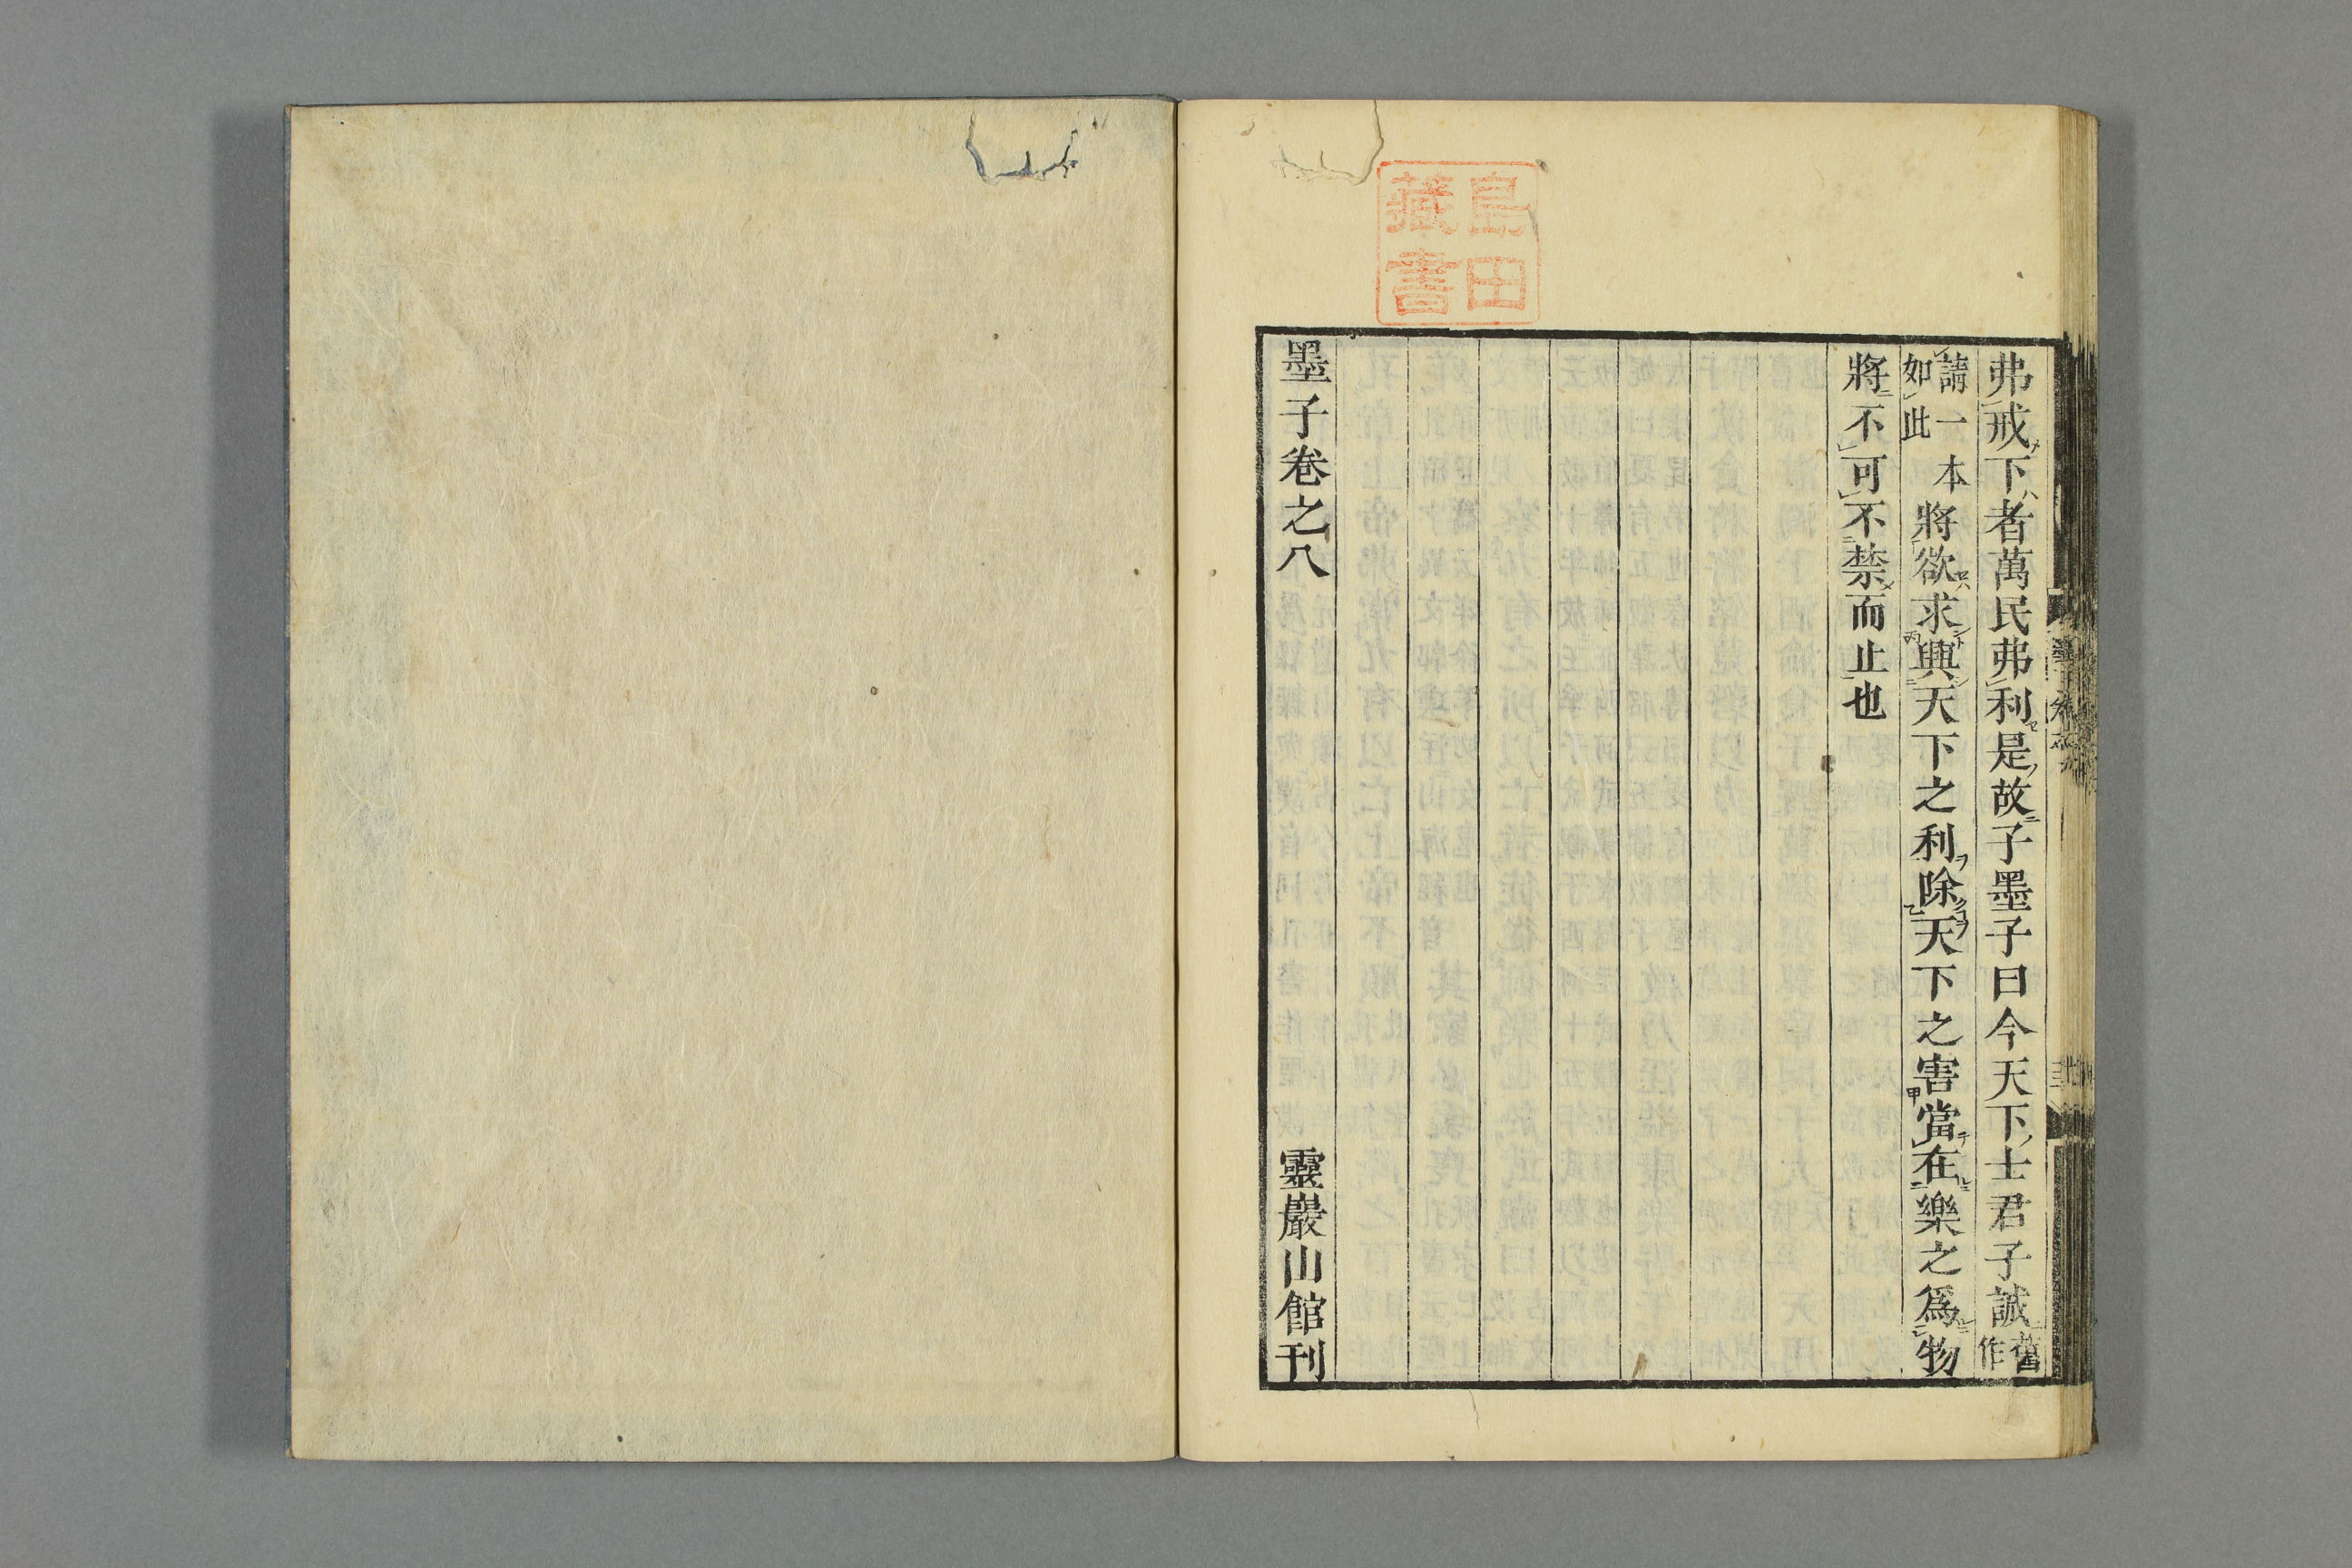 弗戒下者萬民弗利是故子墨子曰今天下士君子誠舊作
請一本如此將欲求興天下之利除天下之害當在樂之爲物
將不可不禁而止也
墨子卷之八 靈巖山館刊
島田
藏書